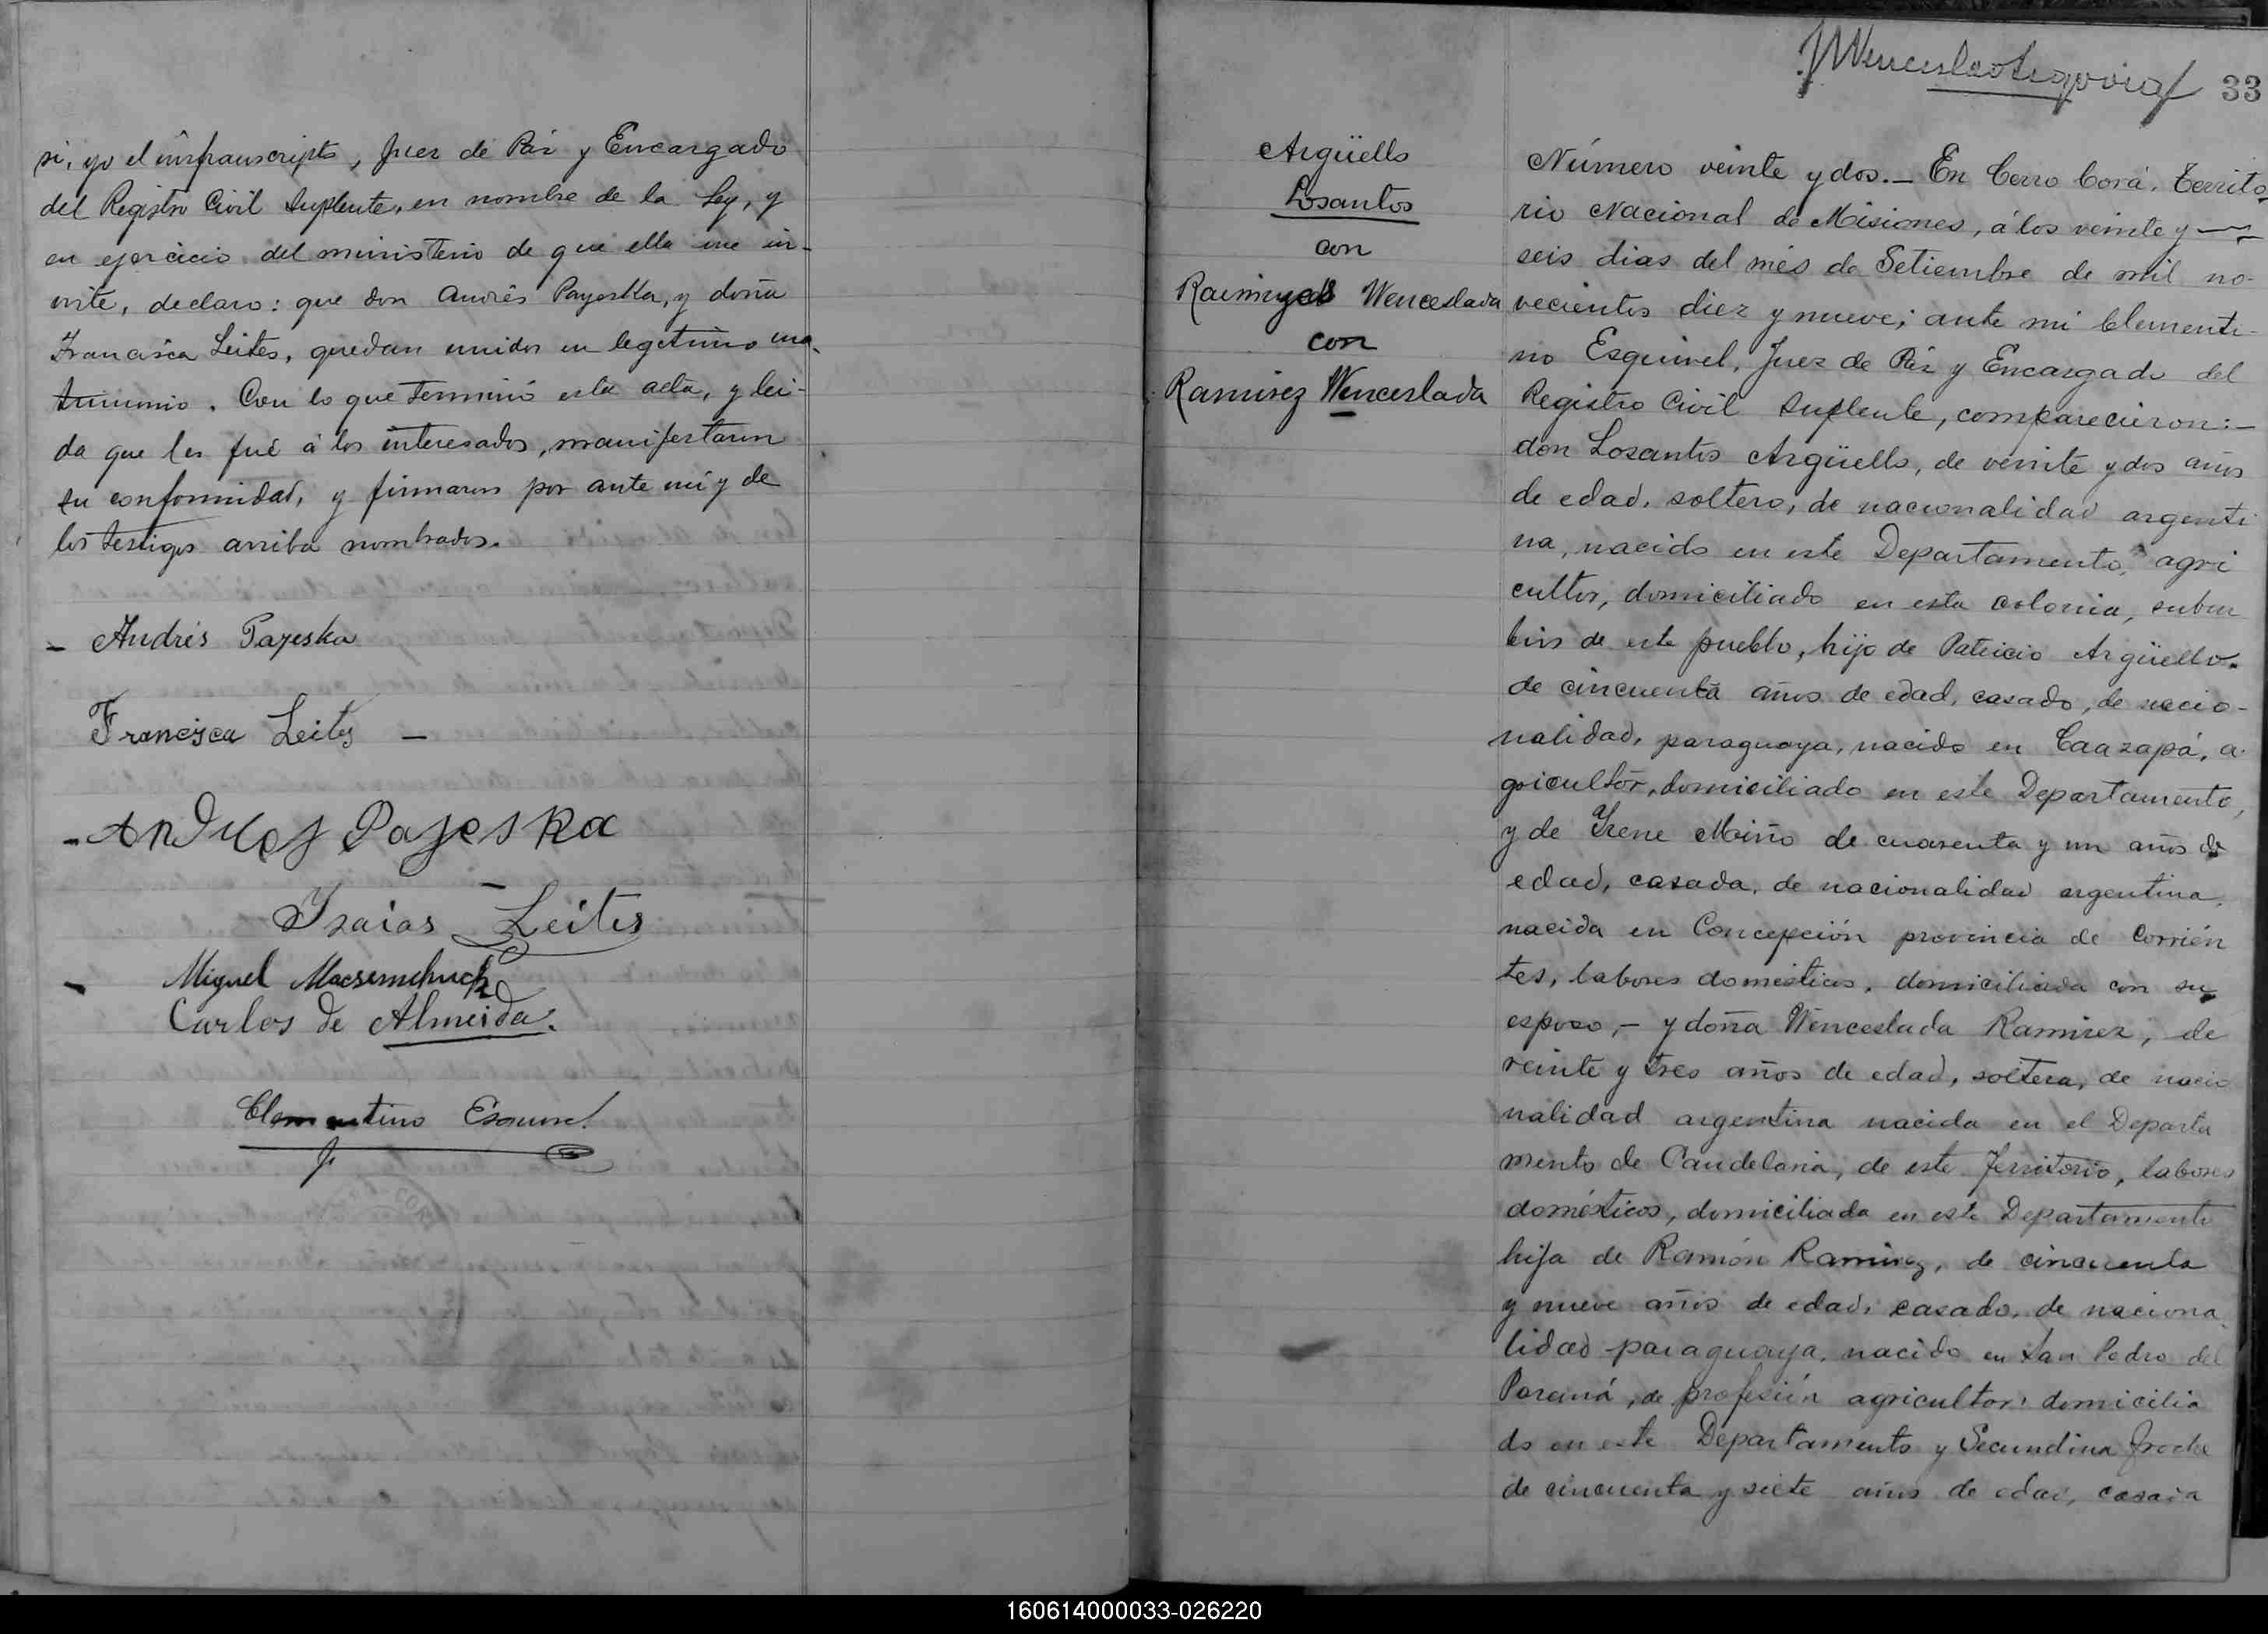 si, yo el infranscripto, Juez de Paz y Encargado
del Registro Civil Suplente, en nombre de la Ley, y
en ejercicio del ministerio de que ella me in-
viste, declaro: que don Andrés Payeska, y doña
Francisca Leites, quedan unidos en legitimo ma-
trimonio. Con lo que terminó esta acta, y lei-
da que les fué á los interesados, manifestaron
su conformidad, y firmaron por ante mi y de
los testigos arriba nombrados.
- Andrés Pajeska
Francisca Leites -
- Andres Pajeska
- Isaias Leites
- Miguel
Carlos de Almeida.
Clementino Esquivel
33
Argüello
Losantos
con
Wenceslada
con
Ramirez Wenceslada
Número veinte y dos.- En Cerro Corá, Territo-
rio Nacional de Misiones, á los veinte y
seis dias del més de Setiembre de mil no-
vecientos diez y nueve; ante mi Clementi-
no Esquivel, Juez de Páz y Encargado del
Registro Civil Suplente, comparecieron:-
don Losantos Argüello, de veinte y dos años
de edad, soltero, de nacionalidad argenti
na, nacido en este Departamento, agri
cultor, domiciliado en esta colonia, subur
bios de este pueblo, hijo de Patricio Argüello.
de cincuenta años de edad, casado, de nacio-
nalidad, paraguaya, nacido en Caazapá, a-
gricultor, domiciliado en este Departamento,
y de Irene Miño de cuarenta y un años de
edad, casada, de nacionalidad argentina,
nacida en Concepción provincia de Corrién
tes, labores domésticos, domiciliada con su
esposo,- y doña Wenceslada Ramirez, de
veinte y tres años de edad, soltera, de nacio
nalidad argentina nacida en el Departa
mento de Candelaria, de este Territorio, labores
domésticos, domiciliada en este Departamento
hija de Ramón Ramirez, de cincuenta
y nueve años de edad, casado, de naciona
lidad paraguaya, nacido en San Pedro del
Paraná, de profesión agricultor, domicilia
do en este Departamento y Secundina
de cincuenta y siete años de edad, casada
160614000033-026220